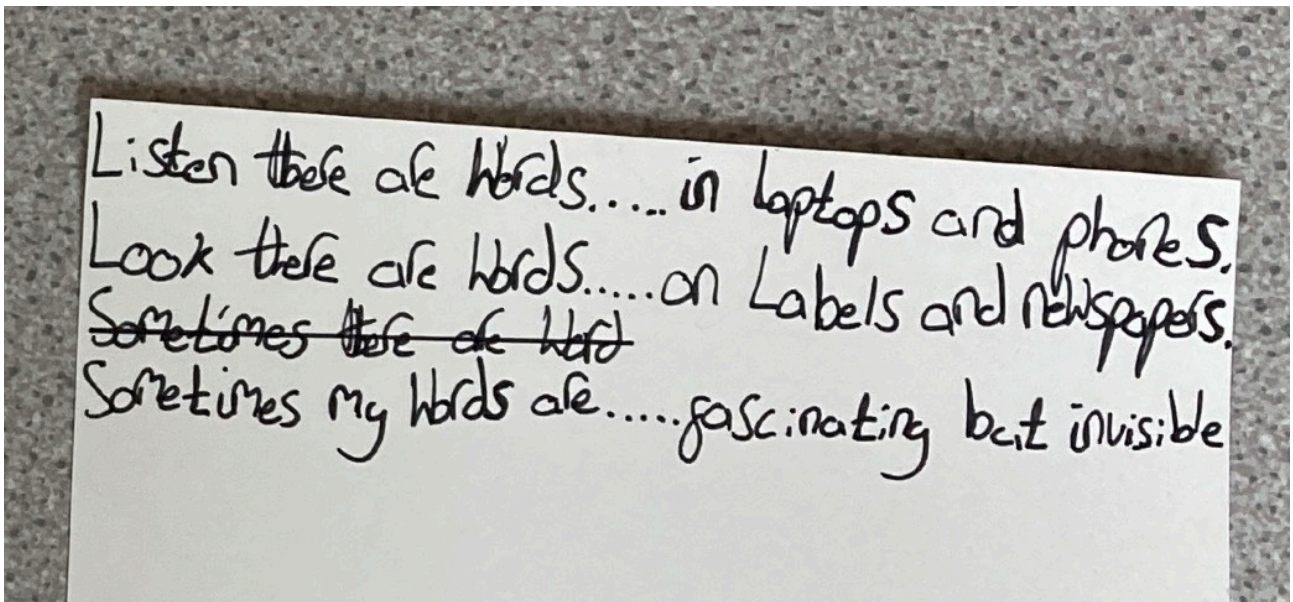 Listen there are words..... in laptops and phones.
Look there are words.....on Labels and newspapers.
Sometimes there are word
Sometimes my words are.....fascinating but invisible